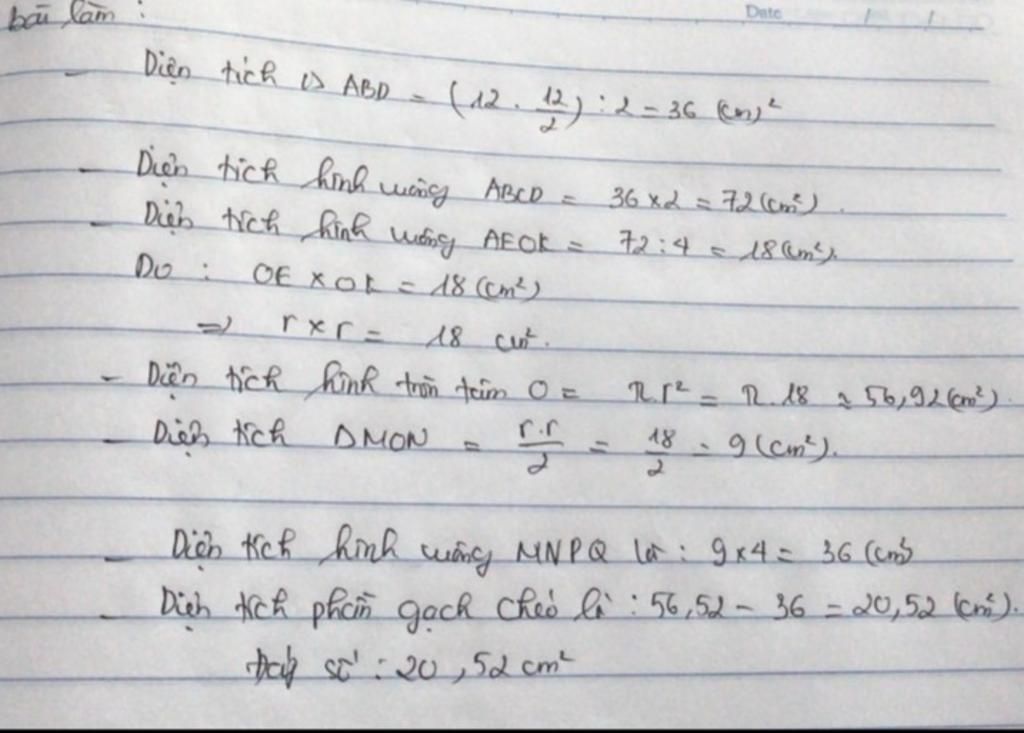 Date / /
bài làm :
- Diện tích △ ABD = (12 . 12/2) : 2 = 36 (cm)²
- Diện tích hình vuông ABCD = 36 x 2 = 72 (cm²).
- Diện tích hình vuông AEOK = 72 : 4 = 18 (cm²).
Do : OE x OK = 18 (cm²)
=> r x r = 18 cm².
- Diện tích hình tròn tâm O = π.r² = π.18 ≈ 56,92 (cm²).
- Diện tích △MON = r.r/2 = 18/2 = 9 (cm²).
- Diện tích hình vuông MNPQ là : 9 x 4 = 36 (cm²)
- Diện tích phần gạch chéo là : 56,52 - 36 = 20,52 (cm²).
Đáp số : 20,52 cm²